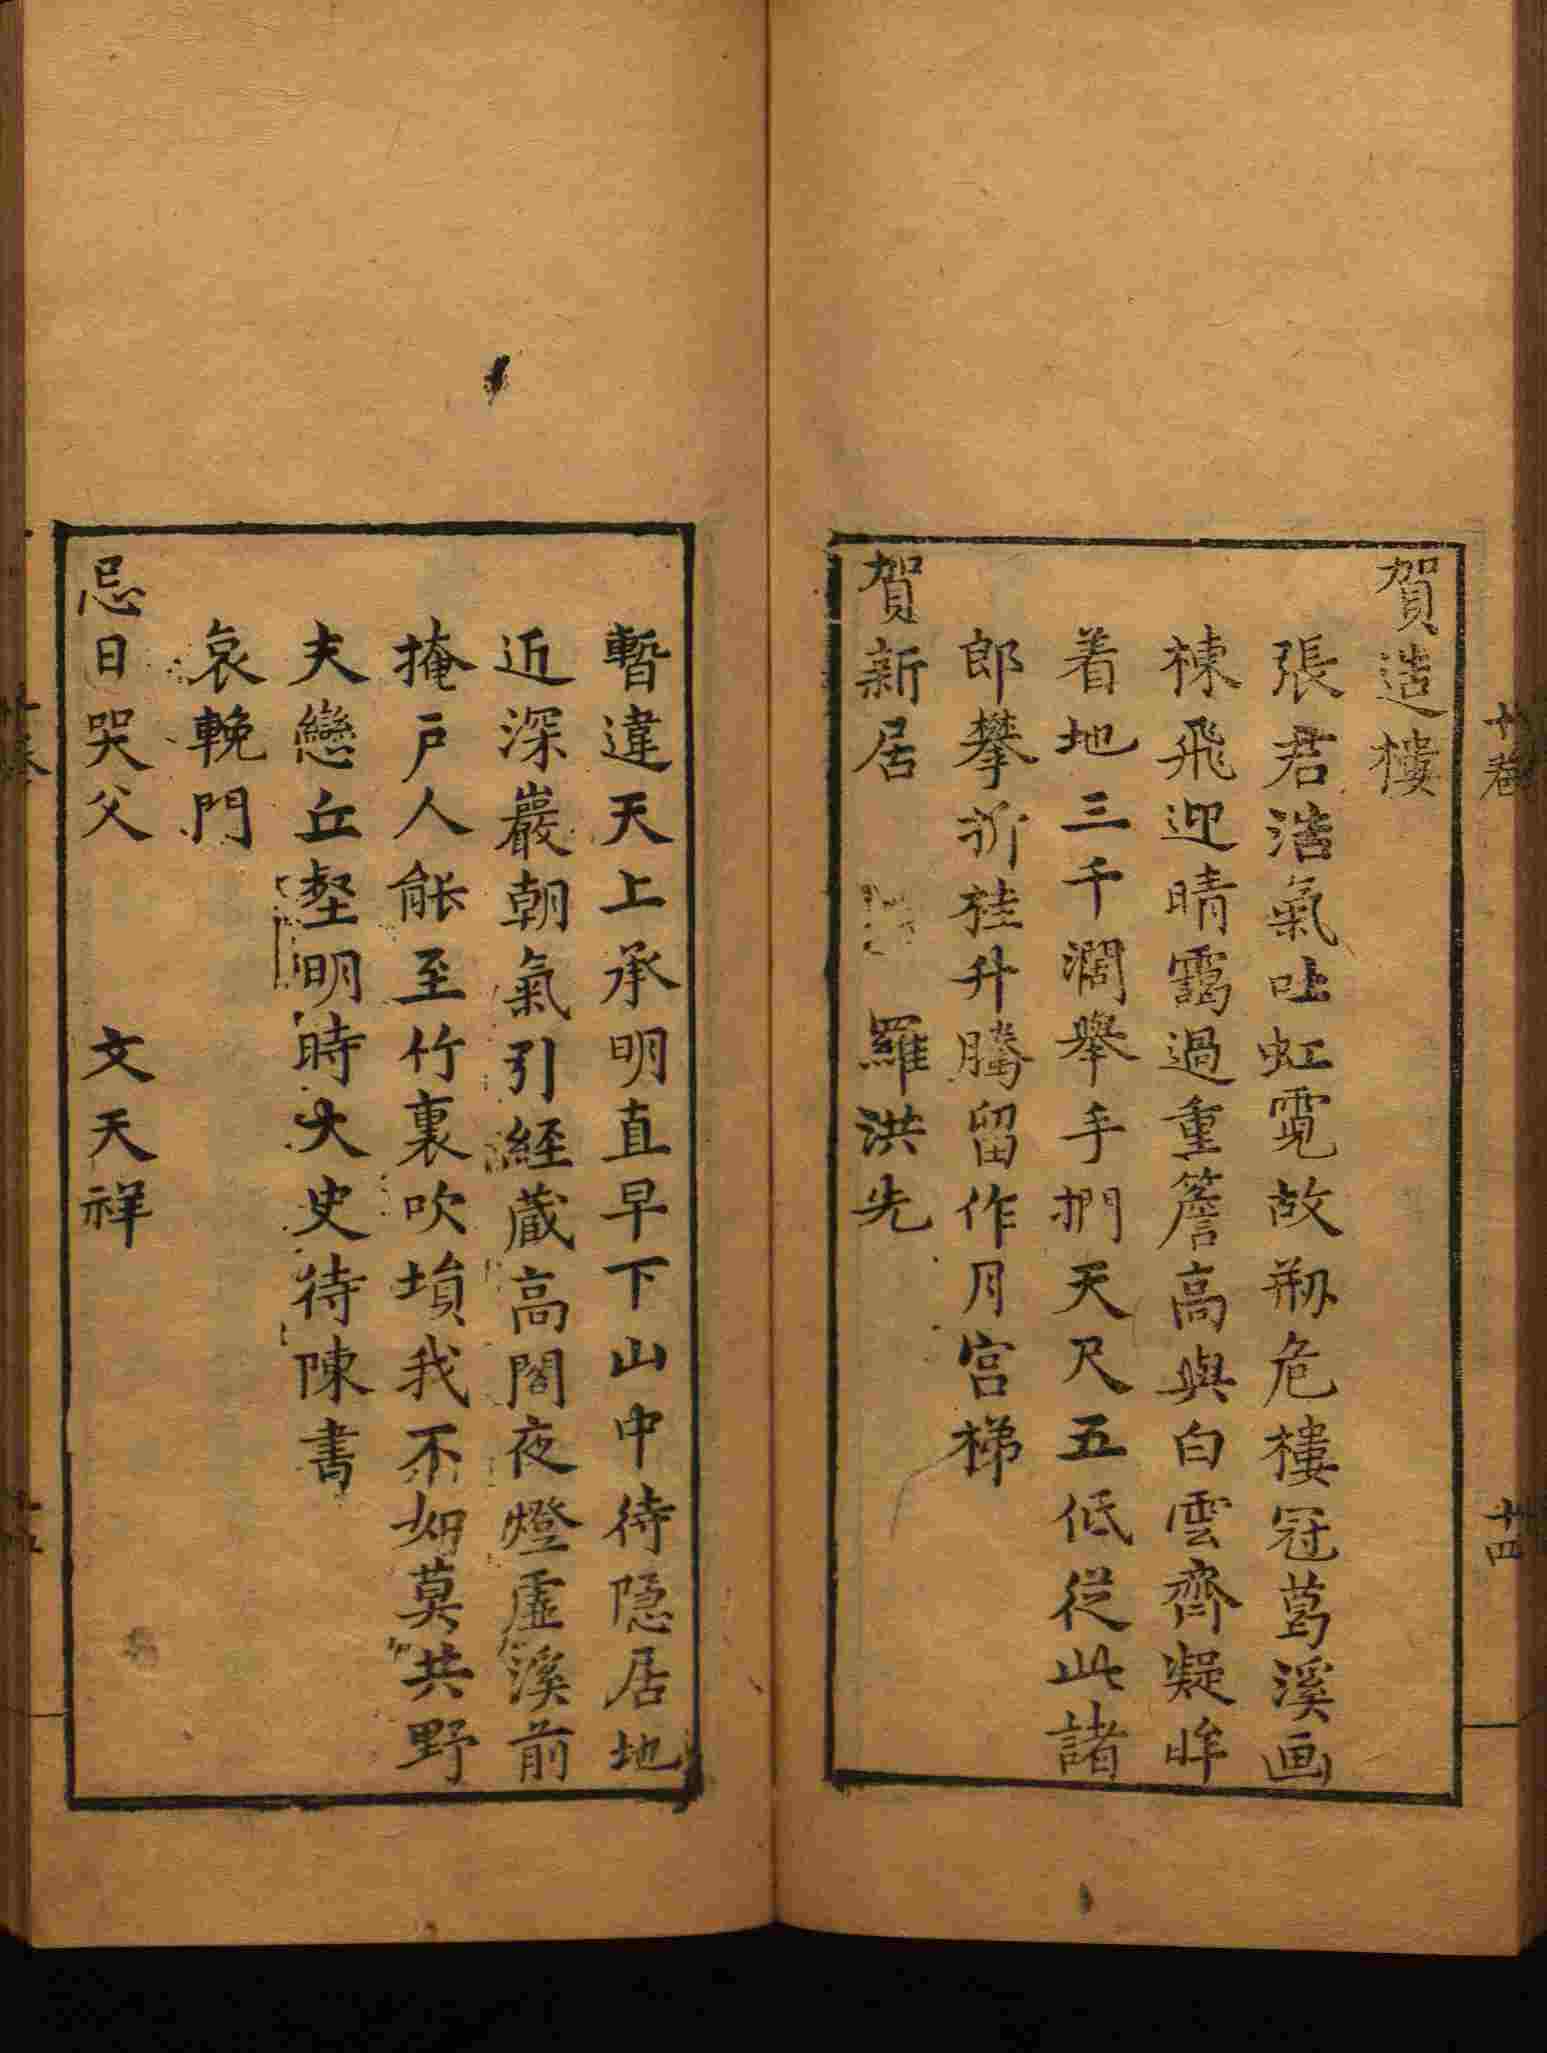 賀造樓
張君浩氣吐虹霓故剏危樓冠葛溪画
棟飛迎晴靄過重簷高與白雲齊凝眸
着地三千濶舉手捫天尺五低従此諸
郎攀折桂升騰留作月宫梯
賀新居 羅洪先
十四
暫違天上承明直早下山中待隠居地
近深巖朝氣引経蔵高閣夜燈虛溪前
掩戸人能至竹裏吹塤我不如莫共野
夫戀丘壑明時太史待陳書
哀輓門
忌日哭父 文天祥